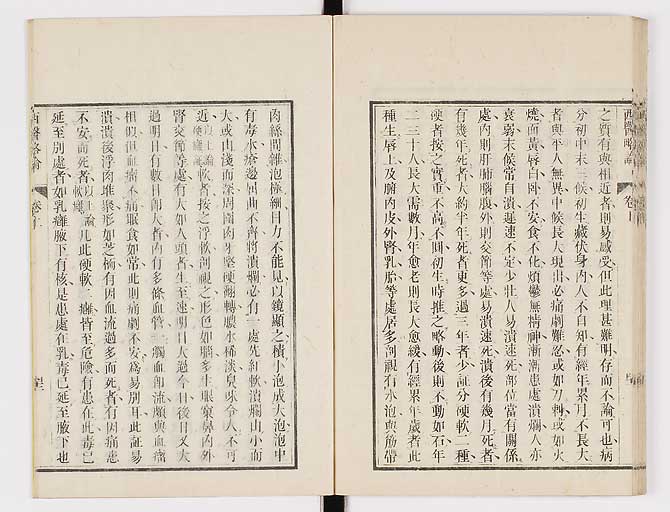 之質有與相近者則易感受但此理甚難明存而不論可也病
分初中末三候初生藏伏身內人不自知有經年累月不長大
者與平人無異中候長大現出必痛劇難忍或如刀刺或如火
燒面黃唇白困不安食不化煩鬱無精神漸漸患處潰爛人亦
衰弱末候常自潰遲速不定少壯人易潰速死部位當有關係
處內則肝肺腦腹外則交節等處易潰速死潰後有幾月死者
有幾年死者大約半年死者更多過三年者少証分硬軟二種
硬者按之實重不高不圓初生時推之略動後則不動如石年
二三十人長大需數月年愈老則長大愈緩有經累年歲者此
種生唇上及臍內皮外腎乳胎等處居多剖視有水泡與筋帶
肉絲間雜泡極細目力不能見以鏡顯之積小泡成大泡泡中
有毒水瘡邊屈曲不齊將潰爛必有一處先紅軟潰爛由小而
大或由淺而深周圍肉牙堅硬翻轉膿水稀淡臭味令人不可
近以上論硬癰軟者按之浮軟剖視之形色如腦多生眼窠鼻內外
腎交節等處有大如人頭者生至速明日大過今日後日又大
過明日有數日即大者內有多條血管一觸血即流頗與血瘤
相似但血瘤不痛眠食如常此則痛劇不安爲易別耳此証易
潰潰後浮肉堆聚形如芝栭有因血流過多而死者有因痛患
不安而死者以上論軟癰凡此硬軟二癰皆至危險有患在此毒已
延至別處者如乳癰腋下有核是患處在乳毒已延至腋下也
西醫略論
卷上